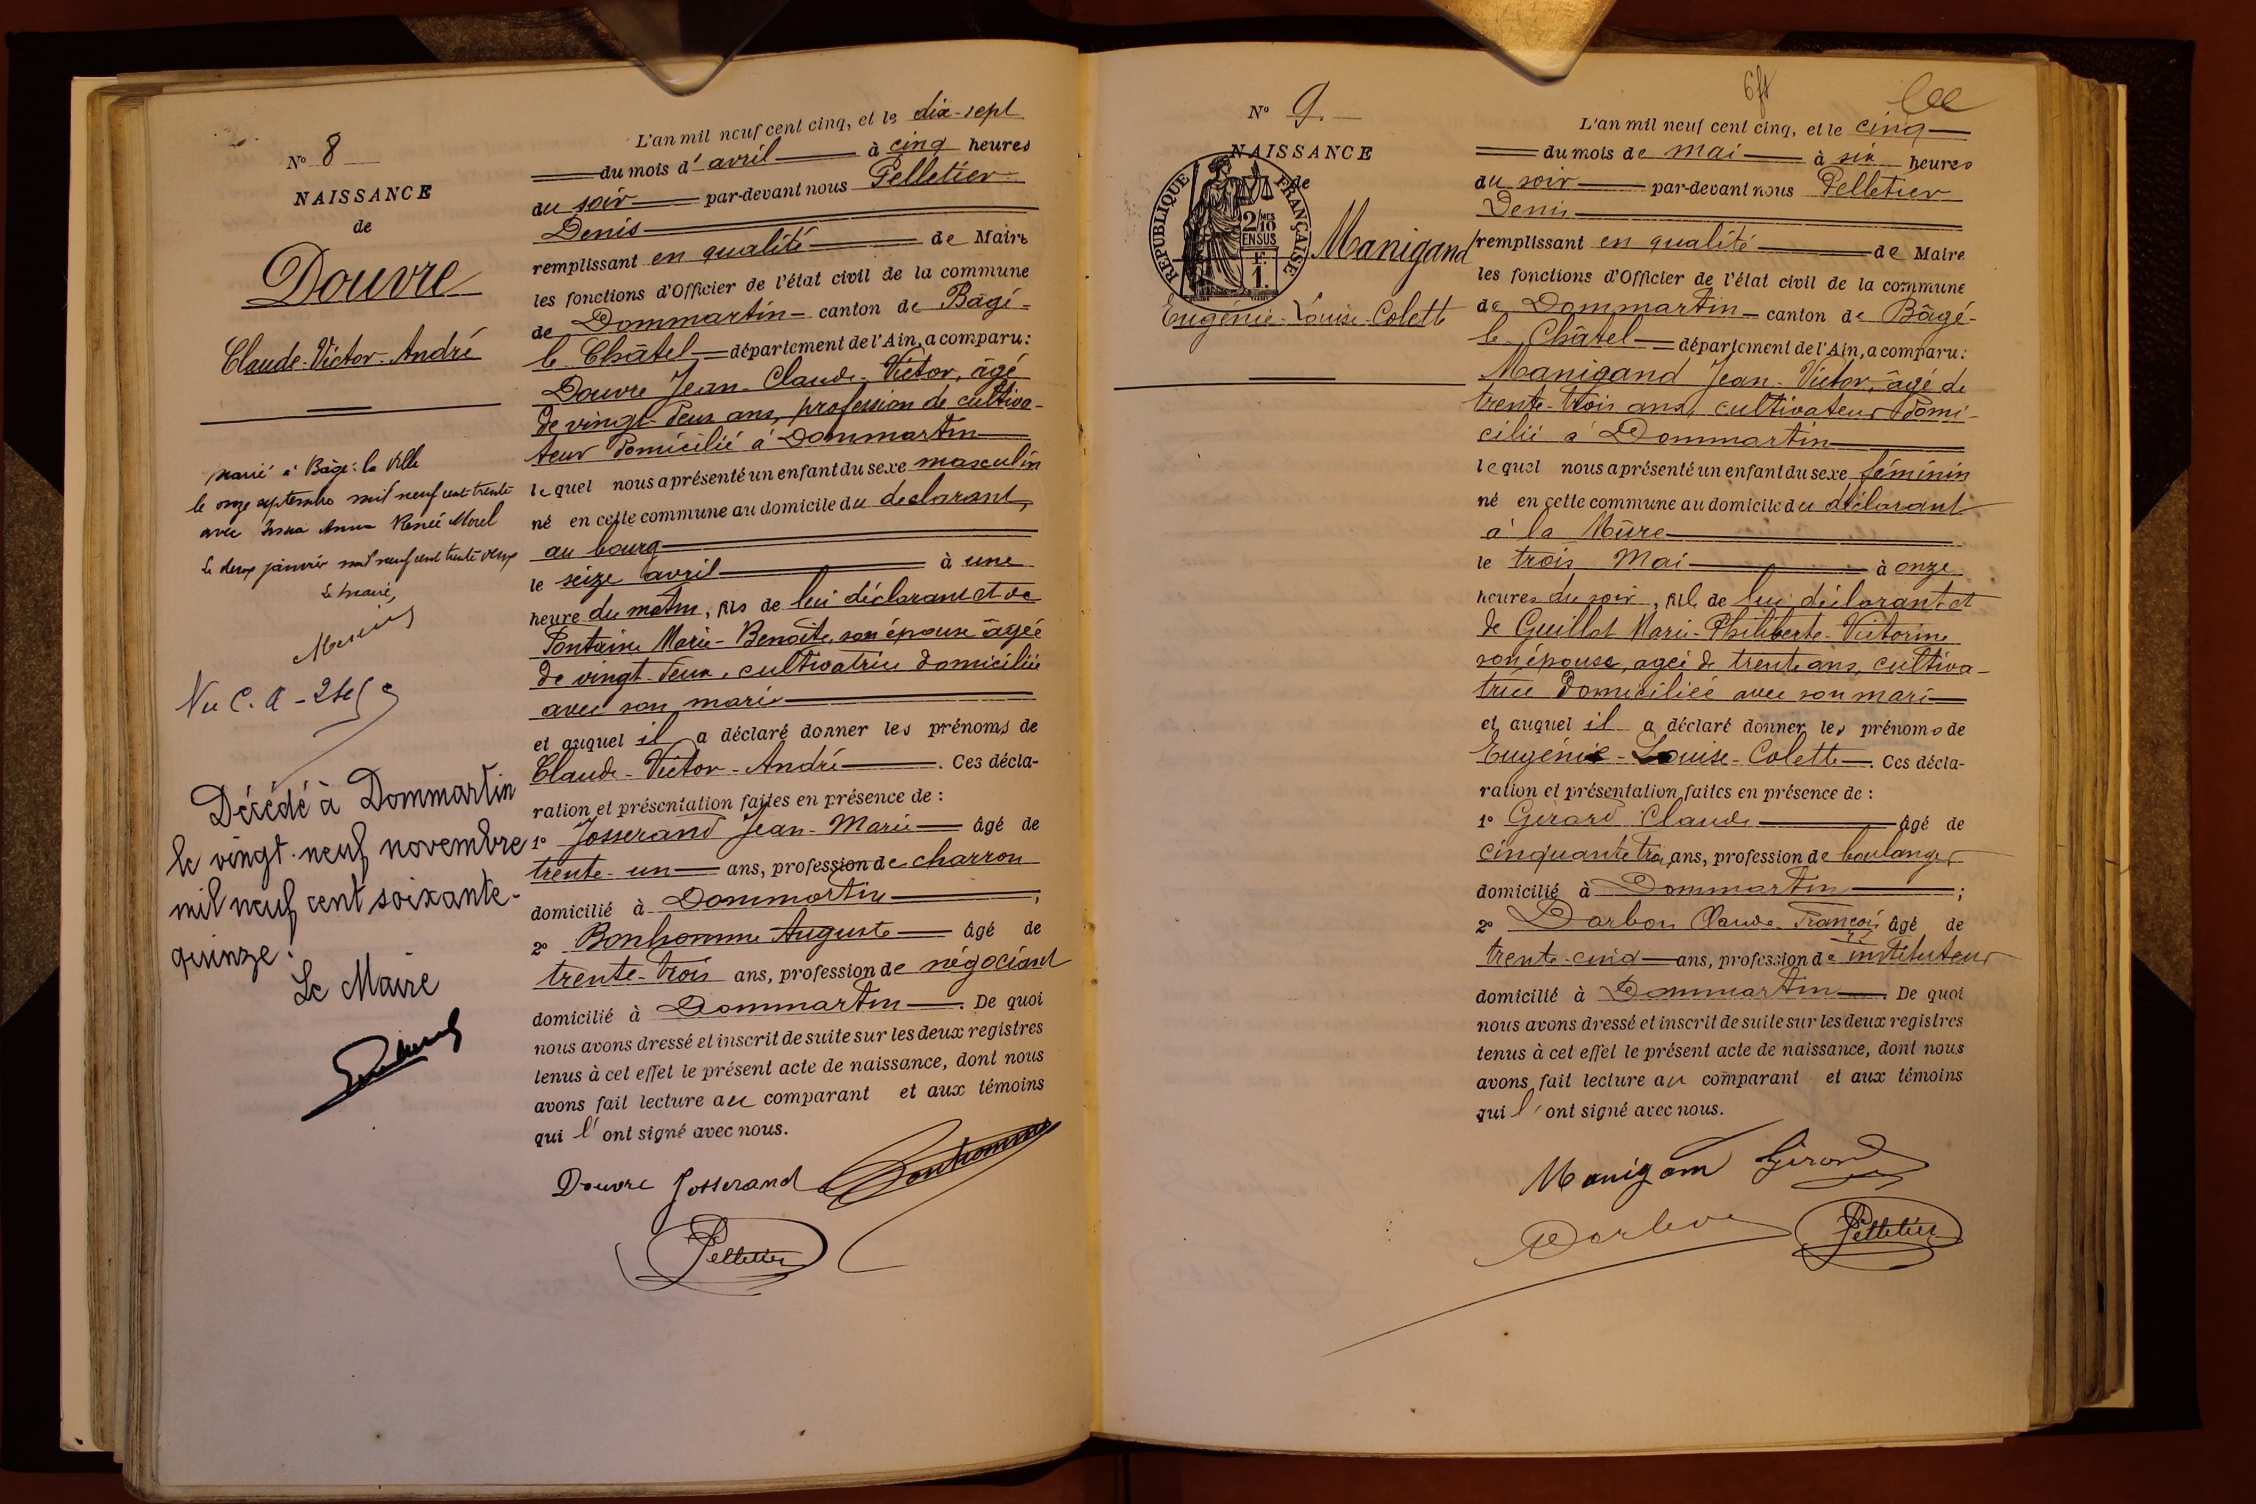 N° 8
NAISSANCE
de
Douvre
Claude-Victor-André
Marié à Bâgé-la Ville
le onze septembre mil neuf cent trente
avec Anna Renée Morel
Le deux janvier mil neuf cent trente deux
Le Maire,
Vu C. A
Décédé à Dommartin
le vingt-neuf novembre
mil neuf cent soixante-
quinze.
Le Maire
L'an mil neuf cent cinq, et le dix-sept
du mois d'avril à cinq heures
du soir par-devant nous Pelletier
Denis
remplissant en qualité de Maire
les fonctions d'Officier de l'état civil de la commune
de Dommartin canton de Bâgé-
le Châtel département de l'Ain, a comparu:
Douvre Jean-Claude-Victor, âgé
de vingt-deux ans, profession de cultiva-
teur domicilié à Dommartin
lequel nous a présenté un enfant du sexe masculin
né en cette commune au domicile du déclarant,
au bourg
le seize avril à une
heure du matin, fils de lui déclarant et de
Fontaine Marie-Benoîte, son épouse âgée
de vingt-deux, cultivatrice domiciliée
avec son mari
et auquel il a déclaré donner les prénoms de
Claude-Victor-André. Ces décla-
ration et présentation faites en présence de :
1° Josserand Jean-Marie âgé de
trente-un ans, profession de charron
domicilié à Dommartin ;
2° Bonhomme Auguste âgé de
trente-trois ans, profession de négociant
domicilié à Dommartin. De quoi
nous avons dressé et inscrit de suite sur les deux registres
tenus à cet effet le présent acte de naissance, dont nous
avons fait lecture au comparant et aux témoins
qui l'ont signé avec nous.
Douvre Josserand Bonhomme
Pelletier
N° 9.
NAISSANCE
de
RÉPUBLIQUE FRANÇAISE
2/10 MES
EN SUS
F.
1.
Manigand
Eugénie-Louise-Colette
L'an mil neuf cent cinq, et le cinq
du mois de mai à six heures
du soir par-devant nous Pelletier
Denis
remplissant en qualité de Maire
les fonctions d'Officier de l'état civil de la commune
de Dommartin canton de Bâgé-
le Châtel département de l'Ain, a comparu:
Manigand Jean-Victor, âgé de
trente-trois ans, cultivateur domi-
cilié à Dommartin
lequel nous a présenté un enfant du sexe féminin
né en cette commune au domicile du déclarant
à la Mûre
le trois Mai à onze
heures du soir, fille de lui déclarant et
de Guillot Marie-Philiberte-Victorine
son épouse, agée de trente ans, cultiva-
trice domiciliée avec son mari
et auquel il a déclaré donner les prénoms de
Eugénie-Louise-Colette. Ces décla-
ration et présentation faites en présence de :
1° Girard Claude âgé de
cinquante trois ans, profession de boulanger
domicilié à Dommartin ;
2° Darbon Claude François âgé de
trente-cinq ans, profession de instituteur
domicilié à Dommartin. De quoi
nous avons dressé et inscrit de suite sur les deux registres
tenus à cet effet le présent acte de naissance, dont nous
avons fait lecture au comparant et aux témoins
qui l'ont signé avec nous.
Manigand Girard
Darbon Pelletier